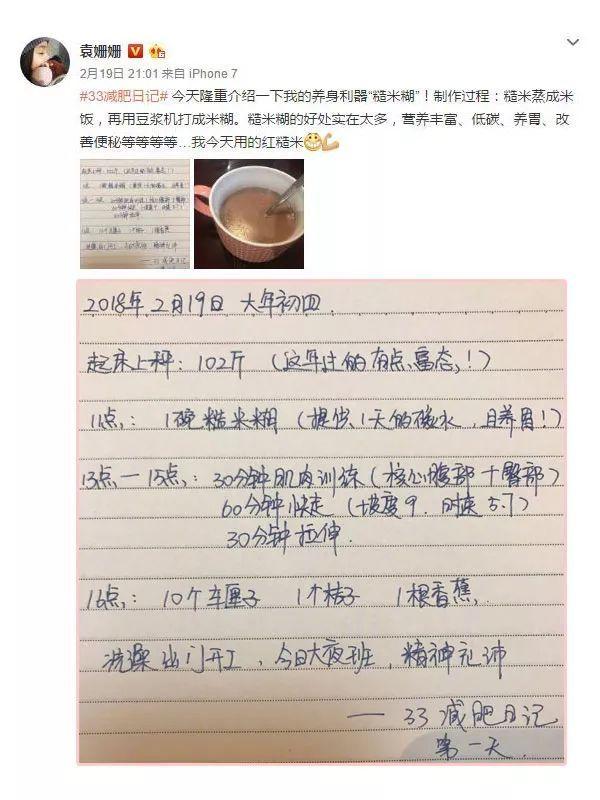 袁姗姗
2月19日 21:01 来自 iPhone 7
#33减肥日记# 今天隆重介绍一下我的养身利器“糙米糊”！制作过程：糙米蒸成米
饭，再用豆浆机打成米糊。糙米糊的好处实在太多，营养丰富、低碳、养胃、改
善便秘等等等等…我今天用的红糙米
2018年2月19日 大年初四
起床上秤：102斤（这年过的有点富态！）
11点：1碗糙米糊（提供1天的碳水，且养胃！）
13点—15点：30分钟肌肉训练（核心腹部+臀部）
60分钟快走（坡度9．时速5.7）
30分钟拉伸．
16点：10个车厘子 1个桔子 1根香蕉
洗澡出门开工，今日大夜班，精神充沛
——33减肥日记
第一天．